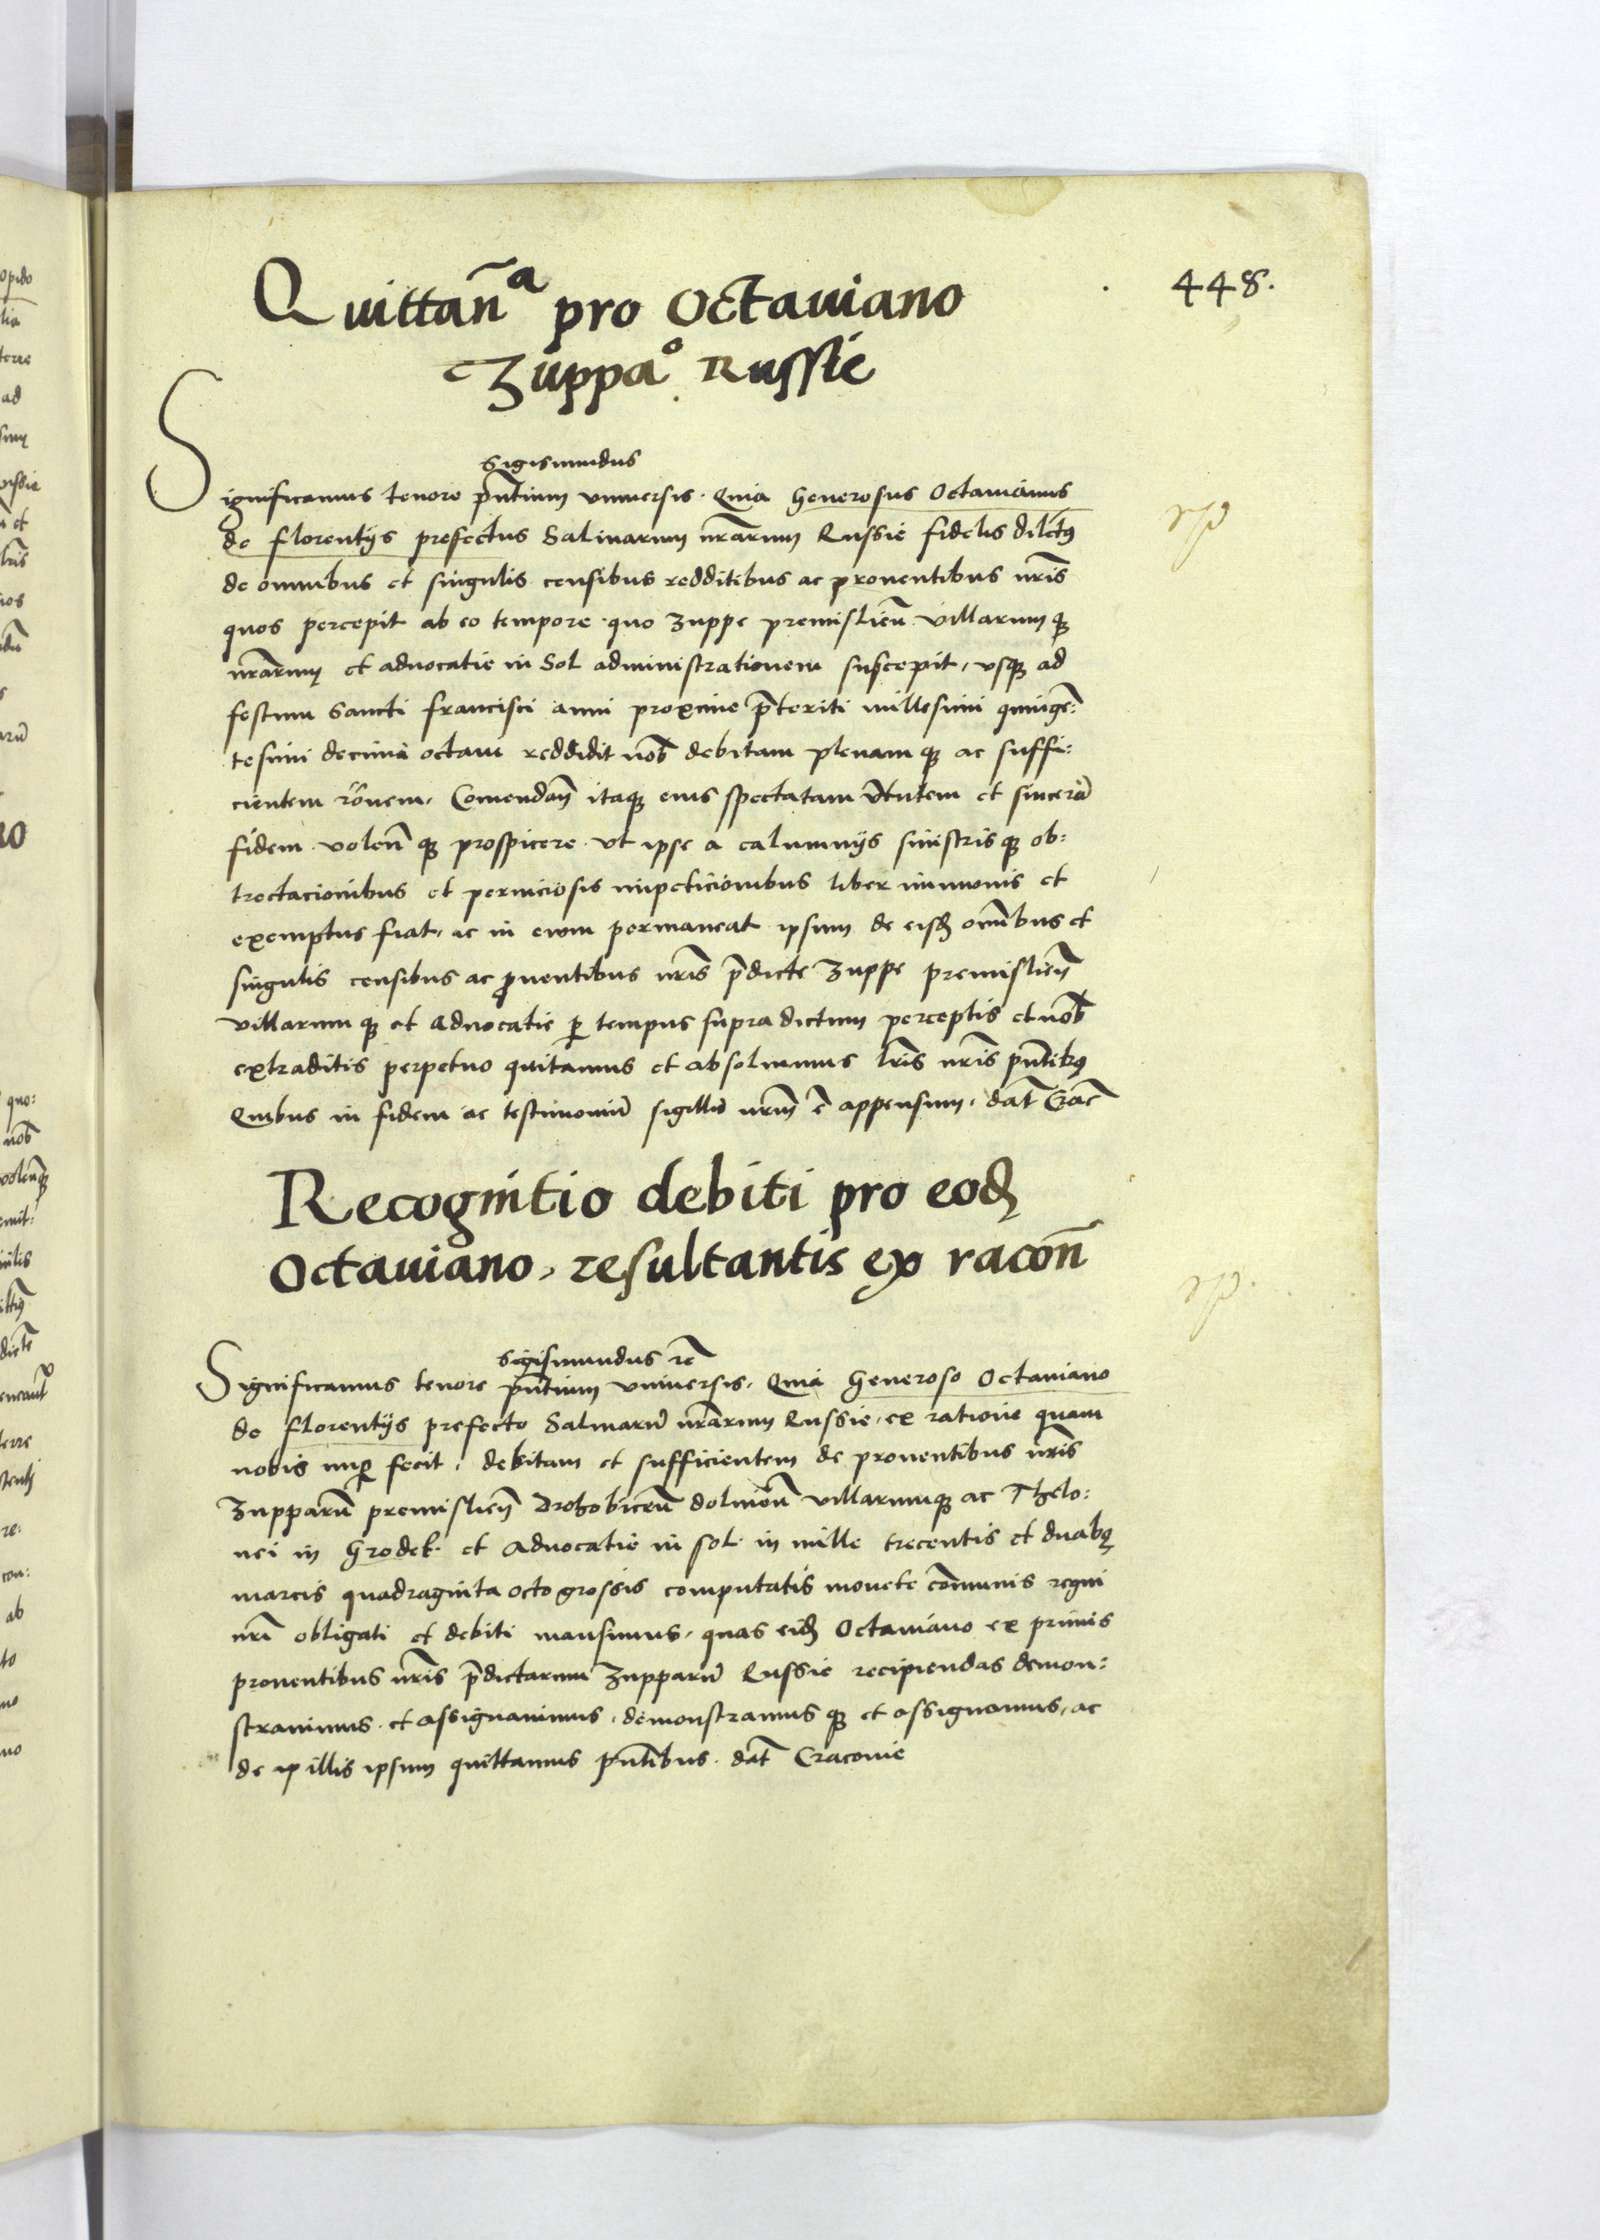 448.
Quittanᷓ pro Octauiano
Zuppaº Russie
Sigismundus
Significamus tenore pn̄tium vniuersis. Quia Generosus Octauianus
de florentijs prefectus Salinarum nr̄arum Russie fidelis dilctꝰ
de omnibus et singulis censibus redditibus ac prouentibus nr̄is
quos percepit ab eo tempore quo zuppe premislien̄ villarumqꝫ
nr̄arum et aduocatie in Sol administrationem suscepit, vsqꝫ ad
festum Sancti francisci anni proxime p̄teriti millesimi quinge͂:
tesimi decimi octaui reddidit nob̄ debitam plenamqꝫ ac suffi:
cientem rōnem, Comendan̄ itaqꝫ eius spectatam v̄tutem et sincerā
fidem volen̄qꝫ prospicere vt ipse a calumnijs sinistrisqꝫ ob:
trectacionibus et perniciosis impeticionibus liber immunis et
exemptus fiat, ac in euum permaneat ipsum de eisd̄ om̄ibus et
singulis censibus ac ꝓuentibus nr̄is p̄dicte zuppe premislien̄
villarumqꝫ et aduocatie ꝑ tempus supradictum perceptis et nob̄
extraditis perpetuo quitamus et absoluimus lr̄is nr̄is pn̄tibꝰ
Quibus in fidem ac testimoniū sigillū nrm̄ ē appensum, dat̄ Crac̄
Recognitio debiti pro eod̄
Octauiano, resultantis ex racon̄
Sigismundus rc̄
Significamus tenore pn̄tium vniuersis, Quia Generoso Octauiano
de florentijs prefecto Salinarū nr̄arum Russie, ex ratione quam
nobis nuꝑ fecit, debitam et sufficientem de prouentibus nr̄is
Zupparū premislien̄ Drohobicen̄ dolinen̄ villarumqꝫ ac Thelo:
nei in Grodek et aduocatie in sol in mille trecentis et duabꝰ
marcis quadraginta octo grossis computatis monete cōmunis regni
nr̄i obligati et debiti mansimus, quas eid̄ Octauiano ex primis
prouentibus nr̄is p̄dictarum Zupparū Russie recipiendas demon:
strauimus et assignauimus, demonstramusqꝫ et assignamus, ac
de illis ipsum quittamus pn̄tibus. dat̄ Cracouie